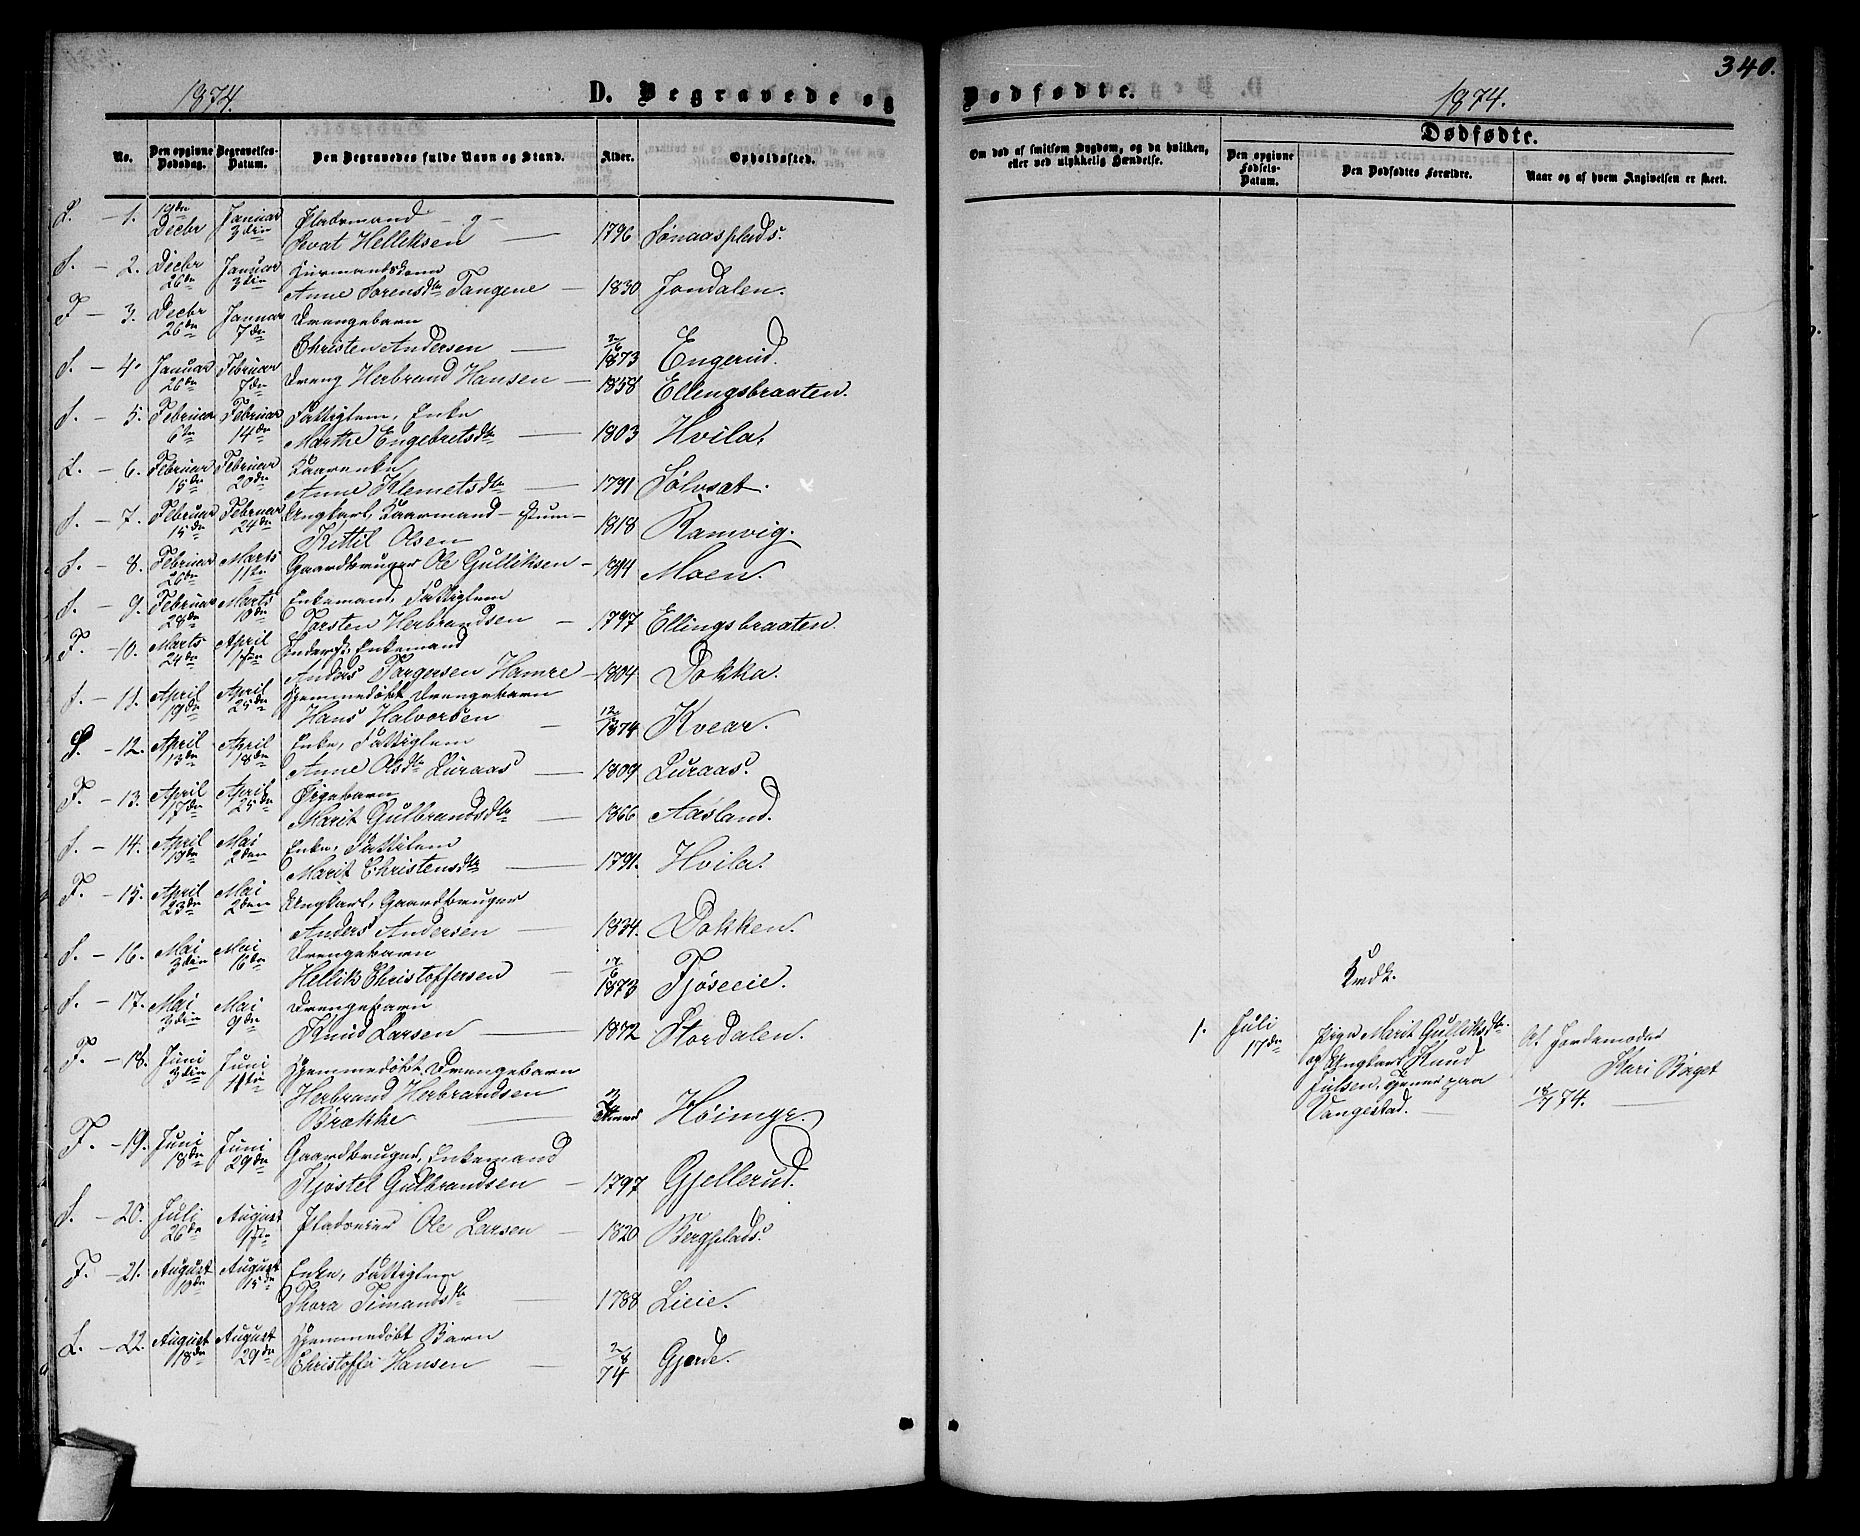 340.
1874.
D. Begravede og Dødfødte.
1874.
Dødfødte.
No.
Den opgivne Dødsdag.
Begravelses-Datum.
Den Begravedes fulde Navn og Stand.
Alder.
Opholdssted.
Om død af smitsom Sygdom, og da hvilken, eller ved ulykkelig Hændelse.
Den opgivne Fødsels-Datum.
Den Dødfødtes Forældre.
Naar og af hvem Angivelsen er skeet.
L. - 1. 19de Decbr Januar 3die Pladsmand
Helliksen 1796 Sønaasplads.
S. - 2. Decbr 26de Januar 3die Huusmandskone
Anne Sorensdtr Tangene - 1830 Jondalen.
F - 3. Decbr 26de Januar 7de Drengebarn
Christen Andersen - 2/6 1873 Engerud.
S. - 4. Januar 26de Februar 7de Dreng Herbrand Hansen - 1858 Ellingsbraaten.
S. - 5. Februar 6te Februar 14de Fattiglem, Enke
Marthe Engebretsdtr - 1803 Hvila.
L. - 6. Februar 15de Februar 20de Kaarenke
Anne Klemetsdtr - 1791 Sølvsat.
S. - 7. Februar 15de Februar 24de Ungkarl, Kaarmand - stum -
Kittil Olsen 1818 Ramvig.
S. - 8. Februar 26de Marts 11te Gaardbruger Ole Gulliksen - 1844 Moen.
S. - 9. Februar 28de Marts Enkemand, Fattiglem
Torsten Herbrandsen - 1797 Ellingsbraaten.
F. - 10. Marts 24de April Inders, Enkemand
Anders Torgersen Hamre - 1804 Dokka.
S. - 11. April 19de April 25de Hjemmedøbt Drengebarn
Hans Halvorsen - 12/4 1874 Kvear.
S. - 12. April 13de April 18de Enke, Fattiglem
Anne Olsdtr Luraas - 1809 Luraas.
F. - 13. April 17de April 25de Pigebarn
Marit Gulbrandsdtr - 1866 Aasland.
S. - 14. April 19de Mai 2den Enke, Fattiglem
Marit Christensdtr - 1791. Hvila.
F. - 15. April 23de Mai 2den Ungkarl, Gaardbruger
Anders Andersen - 1834. Dokken.
S. - 16. Mai 3die Mai 16de Drengebarn
Hellik Christoffersen - 17/6 1873 Fjøseeie.
S. - 17. Mai 3die Mai 9de Drengebarn
Knud Larsen - 1872 Stordalen.
F. - 18. Juni 3die Juni 11te Hjemmedøbt Drengebarn
Herbrand Herbrandsen
Brække - Høimyr.
F. - 19. Juni 18de Juni 29de Gaardbruger, Enkemand
Kjøstel Gulbrandsen - 1797 Gjellerud.
S. - 20. Juli 26de August Pladseier Ole Larsen - 1820 Bergplads.
F. - 21. August August 15de Enke, Fattiglem
Thora Simansdtr - 1788 Lieie.
L. - 22. August 18de August 29de Hjemmedøbt Barn
Christoffer Hansen - 2/8 74 Gjerde.
1. Juli 17de
Pige Marit Gulliksdtr
og Ungkarl Knud
Juelsen, tjener paa
Vangestad.
Af Jordemoder
Kari Baget
18/7 74.